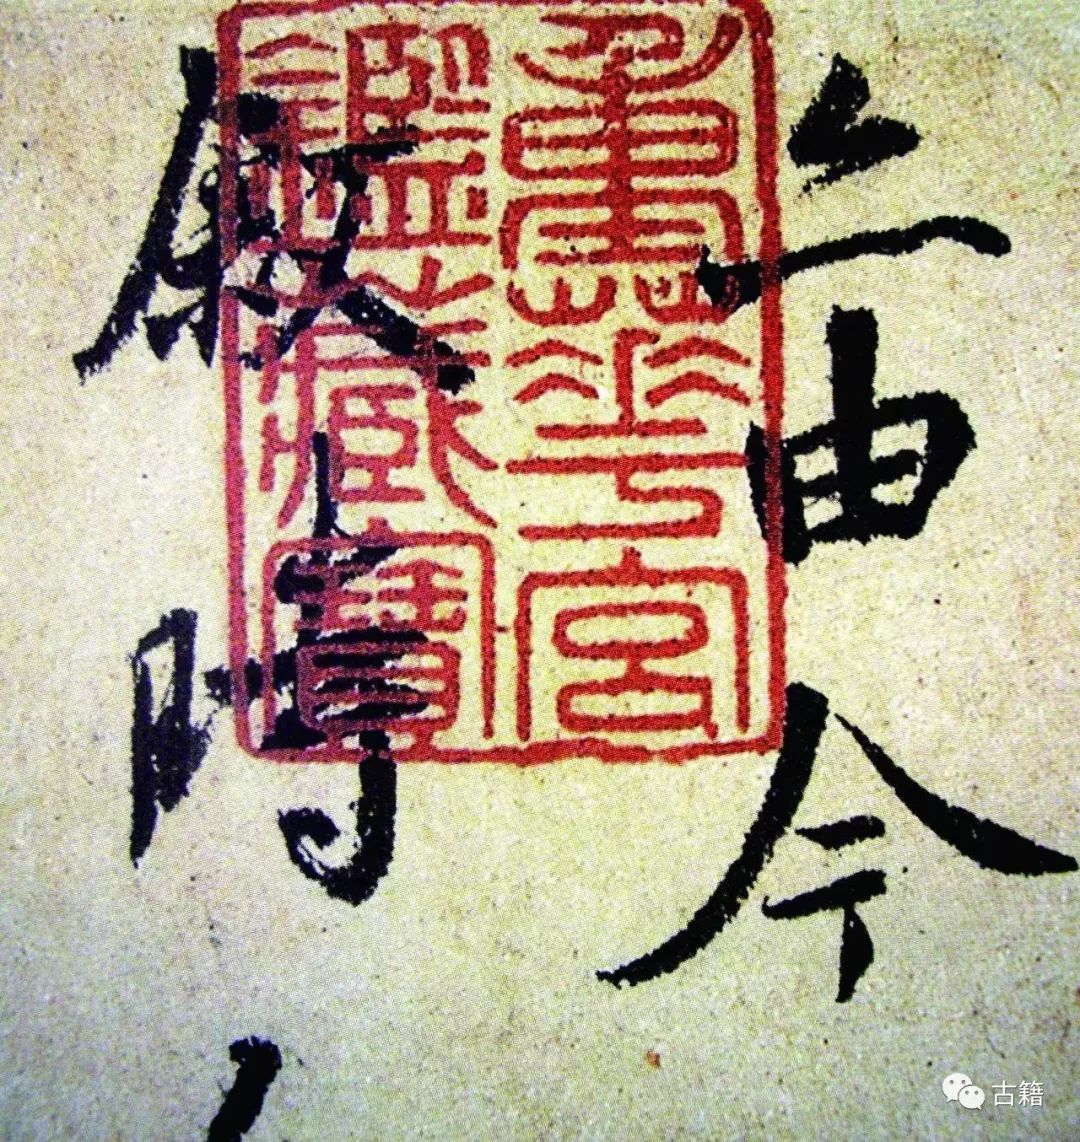 由今
時
重華宮
鑑藏寶
古籍